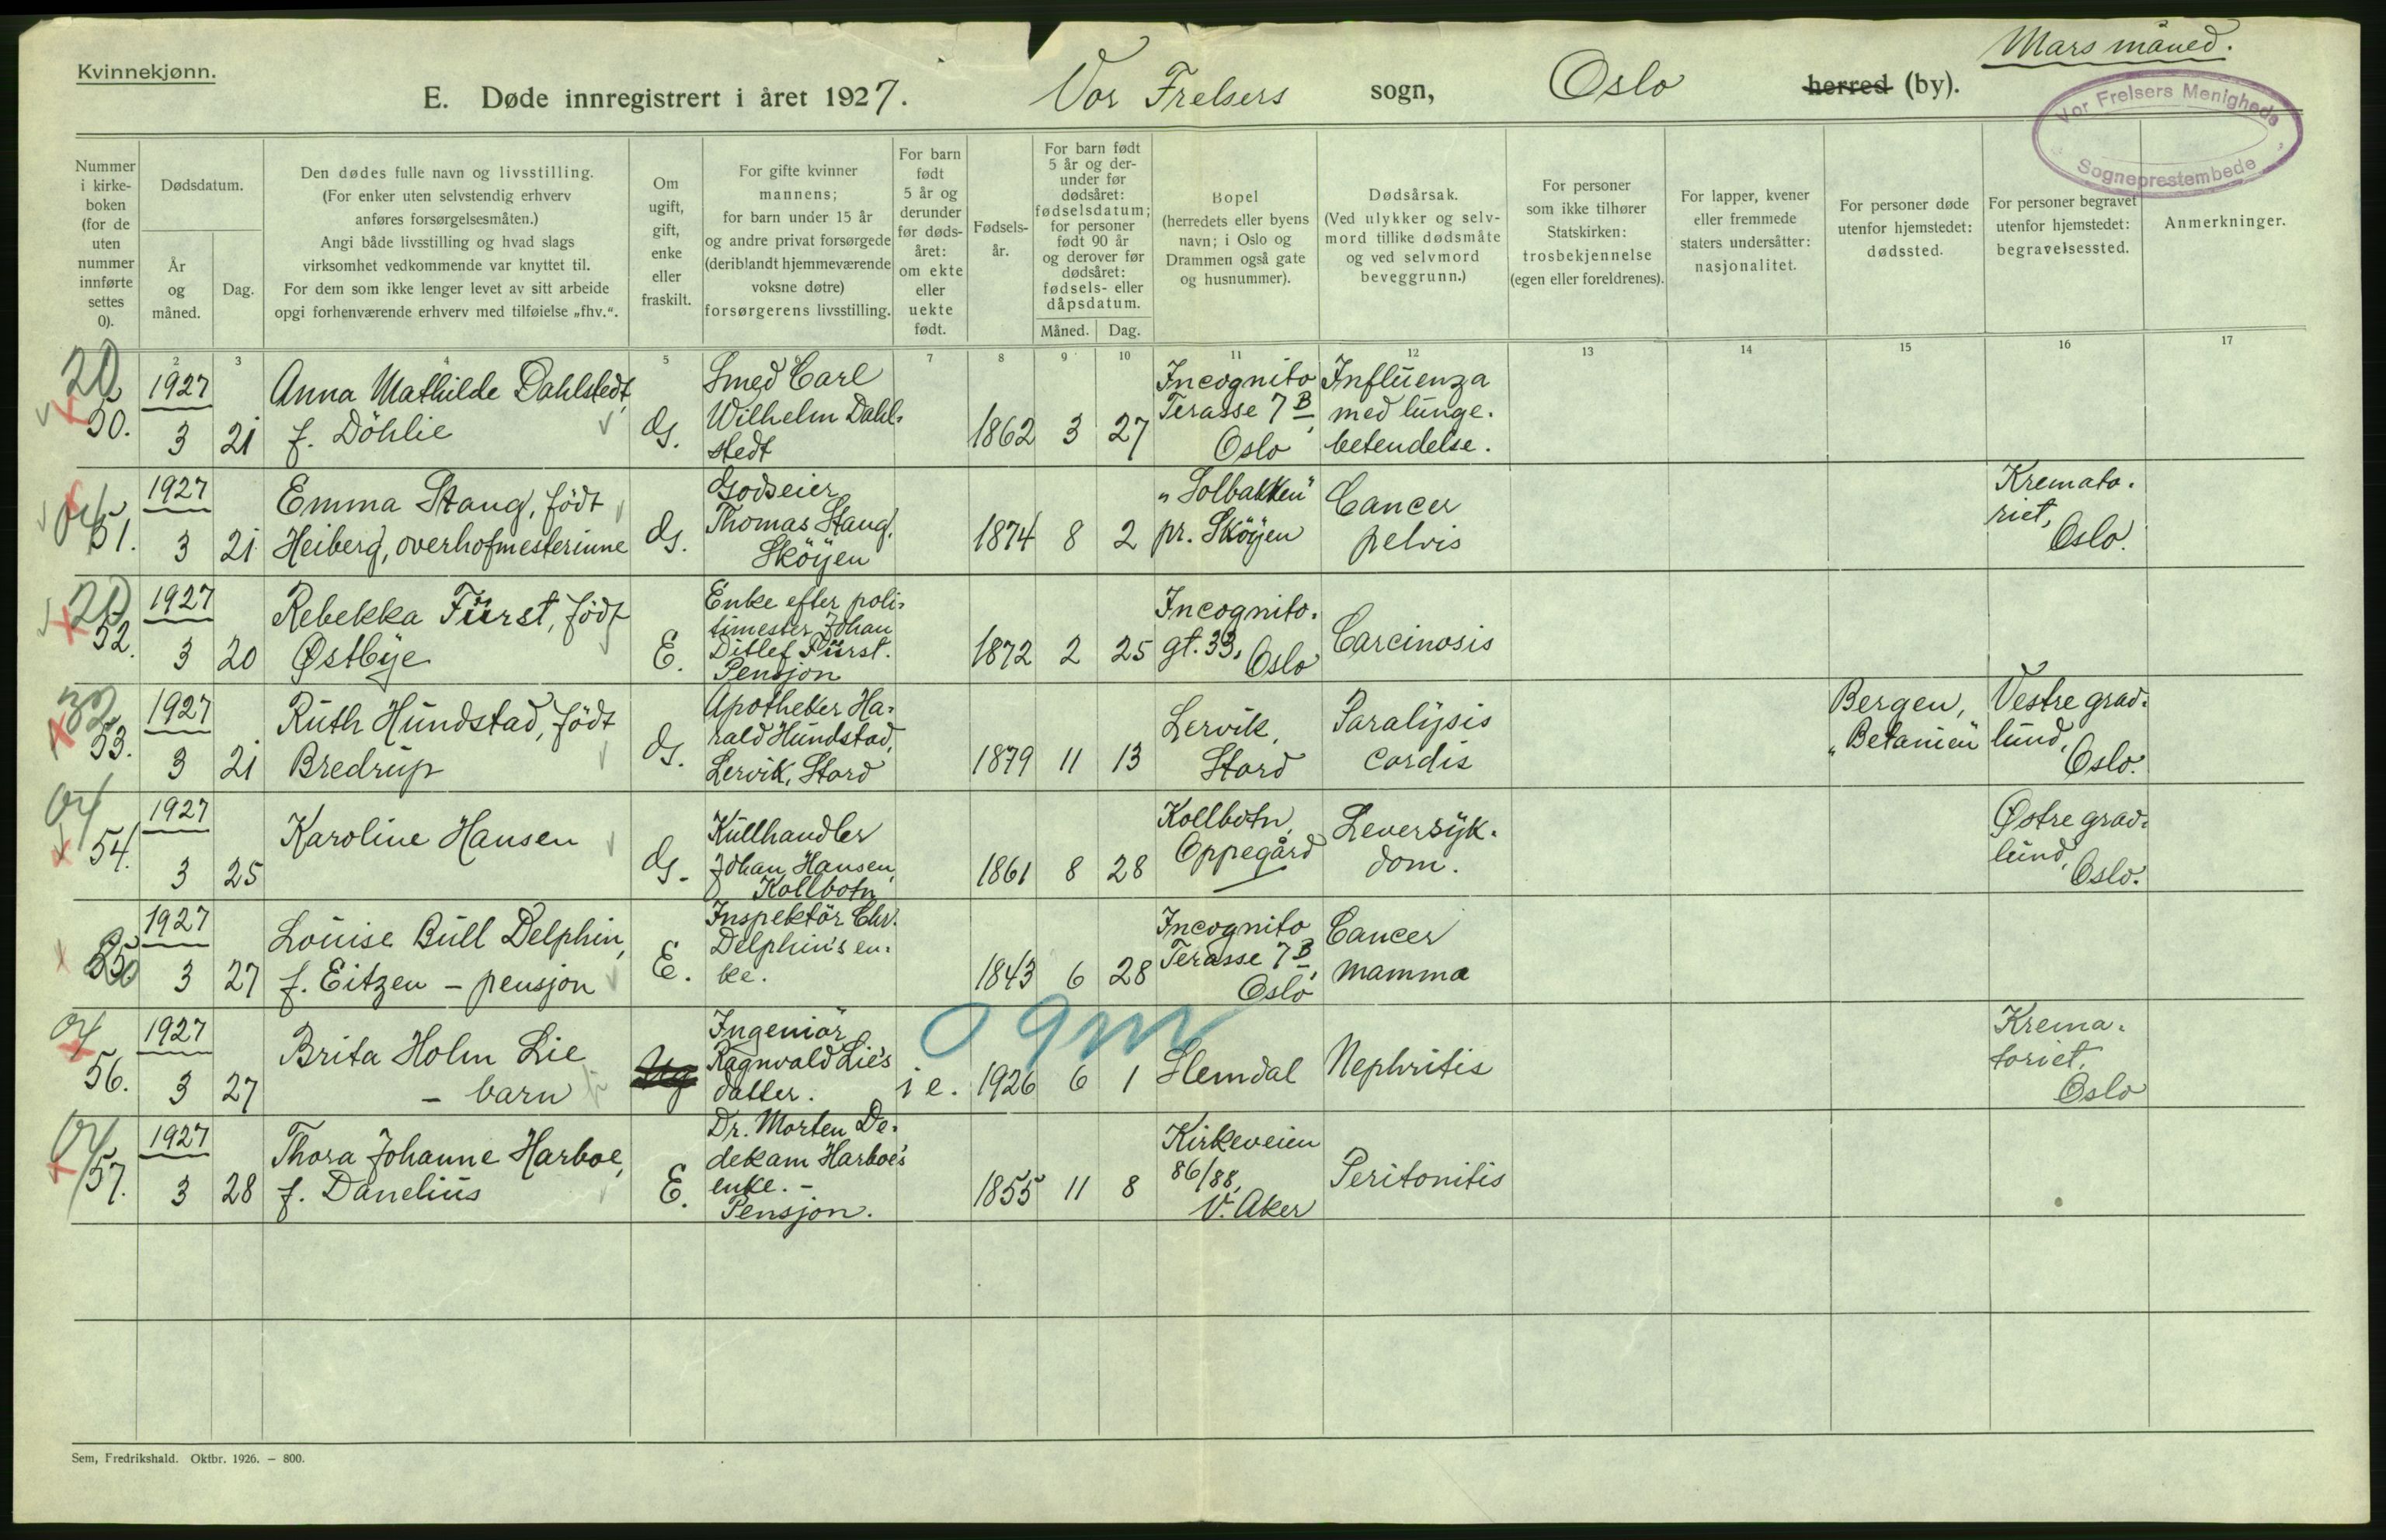 Mars måned.
Kvinnekjønn.
E. Døde innregistrert i året 1927. Vor Frelsers sogn, Oslo herred (by).
Vor Frelsers Menigheds
Sogneprestembede
Nummer
i kirke-
boken
(for de
uten
nummer
innførte
settes
0).
Dødsdatum.
År
og
måned.
Dag.
Den dødes fulle navn og livsstilling.
(For enker uten selvstendig erhverv
anføres forsørgelsesmåten.)
Angi både livsstilling og hvad slags
virksomhet vedkommende var knyttet til.
For dem som ikke lenger levet av sitt arbeide
opgi forhenværende erhverv med tilføielse „fhv.“.
Om
ugift,
gift,
enke
eller
fraskilt.
For gifte kvinner
mannens;
for barn under 15 år
og andre privat forsørgede
(deriblandt hjemmeværende
voksne døtre)
forsørgerens livsstilling.
For barn
født
5 år og
derunder
før døds-
året:
om ekte
eller
uekte
født.
Fødsels-
år.
For barn født
5 år og der-
under før
dødsåret:
fødselsdatum;
for personer
født 90 år
og derover før
dødsåret:
fødsels- eller
dåpsdatum.
Måned. Dag.
Bopel
(herredets eller byens
navn; i Oslo og
Drammen også gate
og husnummer).
Dødsårsak.
(Ved ulykker og selv-
mord tillike dødsmåte
og ved selvmord
beveggrunn.)
For personer
som ikke tilhører
Statskirken:
trosbekjennelse
(egen eller foreldrenes).
For lapper, kvener
eller fremmede
staters undersåtter:
nasjonalitet.
For personer døde
utenfor hjemstedet:
dødssted.
For personer begravet
utenfor hjemstedet:
begravelsessted.
Anmerkninger.
2 3 4 5 7 8 9 10 11 12 13 14 15 16 17
20
50.
1927
3 21
Anna Mathilde Dahlstedt,
f. Döhlie
G.
Smed Carl
Wilhelm Dahl-
stedt
1862 3 27
Incognito
Terasse 7 B,
Oslo
Influenza
med lunge-
betendelse.
51.
1927
3 21
Emma Stang, født
Heiberg, overhofmesterinne
G.
Godseier
Thomas Stang,
Sköyen
1874 8 2
„Solbakken“
pr. Sköyen
Cancer
pelvis
Kremato-
riet,
Oslo.
20
52.
1927
3 20
Rebekka Fürst, født
Østbye
E.
Enke efter poli-
timester Johan
Ditlef Fürst.
Pensjon
1872 2 25
Incognito-
gt. 33, Oslo
Carcinosis
32
53.
1927
3 21
Ruth Hundstad, født
Bredrup
G.
Apotheker Ha-
rald Hundstad,
Lervik, Stord
1879 11 13
Lervik,
Stord
Paralysis
cordis
Bergen,
„Betanien“
Vestre grav-
lund,
Oslo.
54.
1927
3 25
Karoline Hansen
G.
Kullhandler
Johan Hansen,
Kollbotn
1861 8 28
Kollbotn,
Oppegård
Leversyk-
dom.
Østre grav-
lund,
Oslo.
1927
3 27
Louise Bull Delphin,
f. Eitzen - pensjon
E.
Inspektör Chr.
Delphin's en-
ke.
1843 6 28
Incognito
Terasse 7 B,
Oslo
Cancer
mamma
56.
1927
3 27
Brita Holm Lie
- barn
Ug
Ingeniör
Ragnvald Lie's
datter.
i e. 1926 6 1
0 9m
Slemdal
Nephritis
Krema-
toriet,
Oslo
57.
1927
3 28
Thora Johanne Harboe,
f. Danelius
E.
Dr. Morten De-
dekam Harboe's
enke. -
Pensjon.
1855 11 8
Kirkeveien
86/88,
V. Aker
Peritonitis
Sem, Fredrikshald. Oktbr. 1926. - 800.